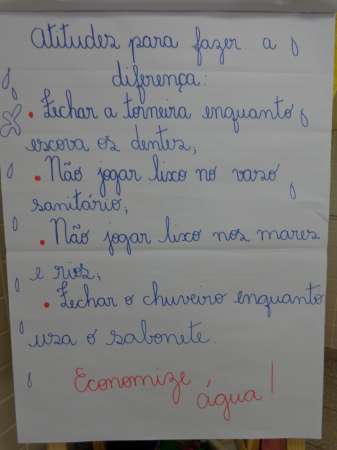 Atitudes para fazer a
diferença:
• Fechar a torneira enquanto
escova os dentes;
• Não jogar lixo no vaso
sanitário;
• Não jogar lixo nos mares
e rios;
• Fechar o chuveiro enquanto
usa o sabonete.
Economize
água!